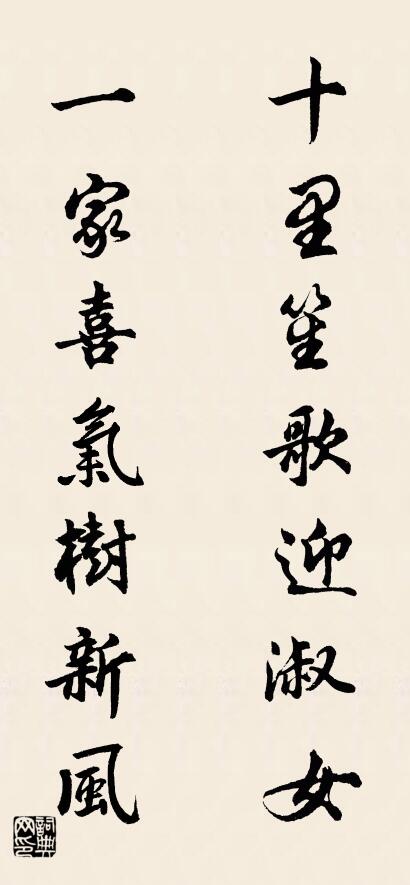 十里笙歌迎淑女
一家喜氣樹新風